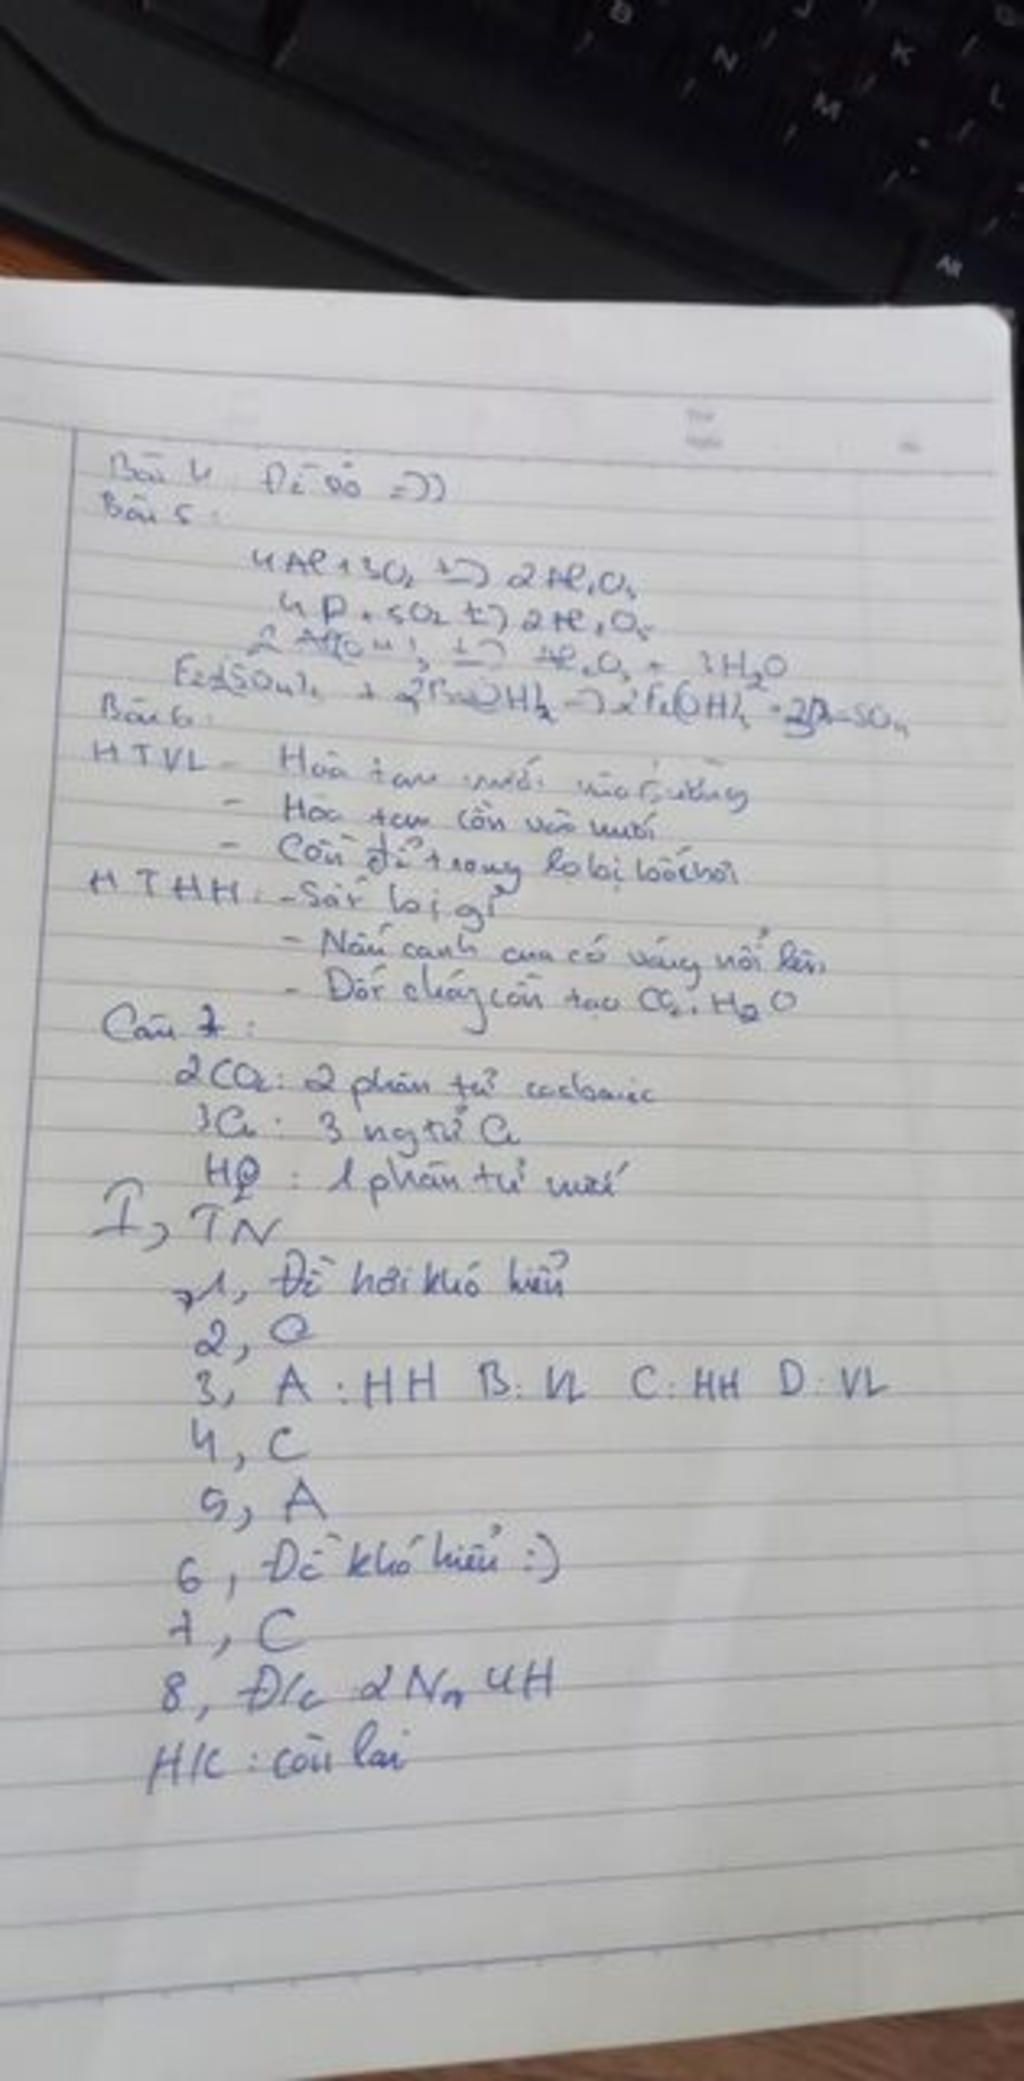 Bài 4: Đề
Bài 5:
4Al + 3O₂ t°→ 2Al₂O₃
4P + 5O₂ t°→ 2Al₂O₅
2Al(OH)₃ t°→ Al₂O₃ + 3H₂O
Fe₂(SO₄)₃ + Ba(OH)₂ → 2Fe(OH)₃ + 3BaSO₄
Bài 6:
HTVL - Hoà tan đường
- Hòa tan cồn vào nước
- Cồn để trong lọ bị bốc hơi
HTHH: - Sắt bị gỉ
- Nấu canh cua có váng nổi lên
- Đốt cháy cồn tạo CO₂, H₂O
Câu 7:
2CO₂: 2 phân tử cacbonic
3Ca: 3 ng tử Ca
H₂O: 1 phân tử nước
I, TN
1, Đề hơi khó hiểu
2,
3, A: HH B: VL C: HH D: VL
4, C
5, A
6, Đề khó hiểu :)
7, C
8, Đ/c 2N, 4H
H/C: còn lại